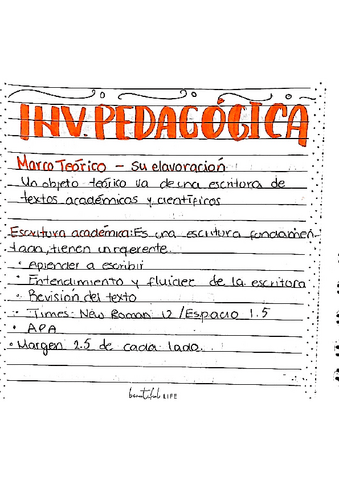 INV. PEDAGÓGICA
Marco Teórico - su elavoración
Un objeto teórico va de una escritora de
textos académicos y científicos
Escritura académica: Es una escritura fundamen
tada, tienen un referente.
• Aprender a escribir
• Entendimiento y fluidez de la escritora
• Revisión del texto
• Times: New Roman 12 / Espacio 1.5
• APA
• Margen 2.5 de cada lado.
beautiful LIFE